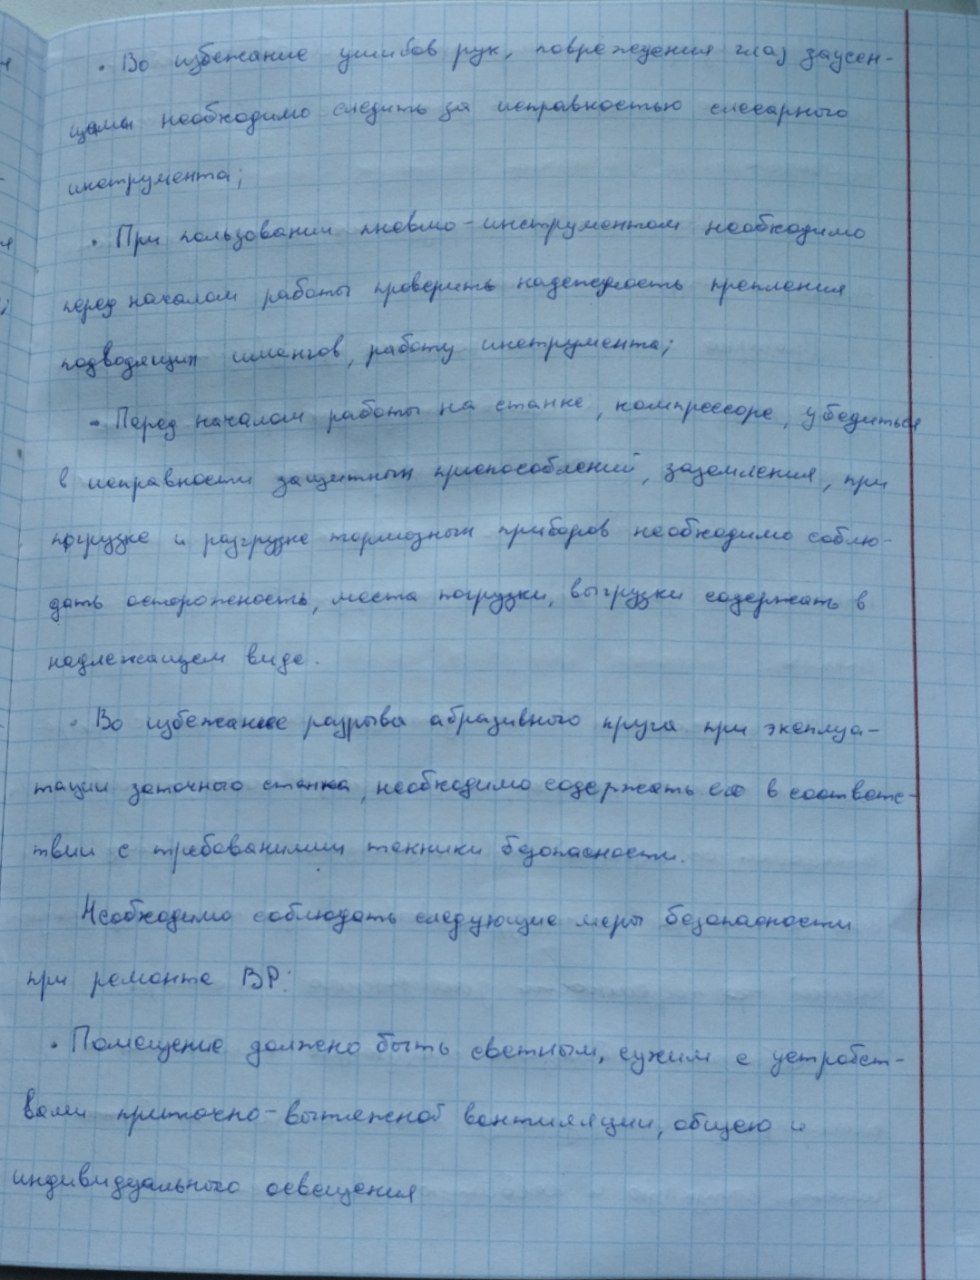 • Во избежание ушибов рук, повреждения глаз заусен-
цами необходимо следить за исправностью слесарного
инструмента;
• При пользовании пневмо-инструментом необходимо
перед началом работы проверить надежность крепления
подводящих шлангов, работу инструмента;
• Перед началом работы на станке, компрессоре, убедиться
в исправности защитных приспособлений, заземления, при
погрузке и разгрузке тормозных приборов необходимо соблю-
дать осторожность, места погрузки, выгрузки содержать в
надлежащем виде.
• Во избежание разрыва абразивного круга при эксплуа-
тации заточного станка, необходимо содержать его в соответс-
твии с требованиями техники безопасности.
Необходимо соблюдать следующие меры безопасности
при ремонте ВР:
• Помещение должено быть светным, сухим с устройст-
вами приточно-вытяжной вентиляции, общею и
индивидуального освещения